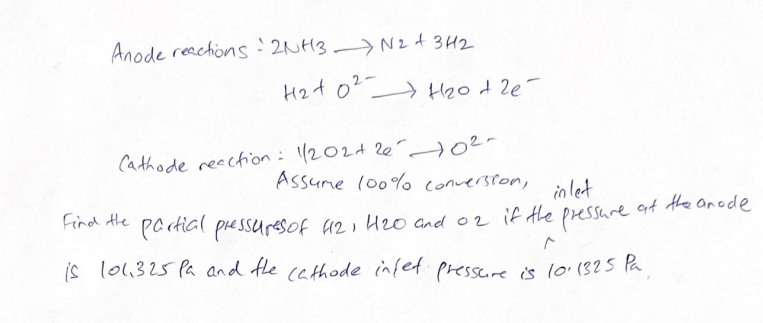 Anode reactions : 2NH3 → N2 + 3H2
H2 + O²⁻ → H2O + 2e⁻
Cathode reaction : 1/2O2 + 2e⁻ → O²⁻
Assume 100% conversion,
Find the partial pressures of H2, H2O and O2 if the inlet pressure at the anode
is 101,325 Pa and the cathode inlet pressure is 10.1325 Pa